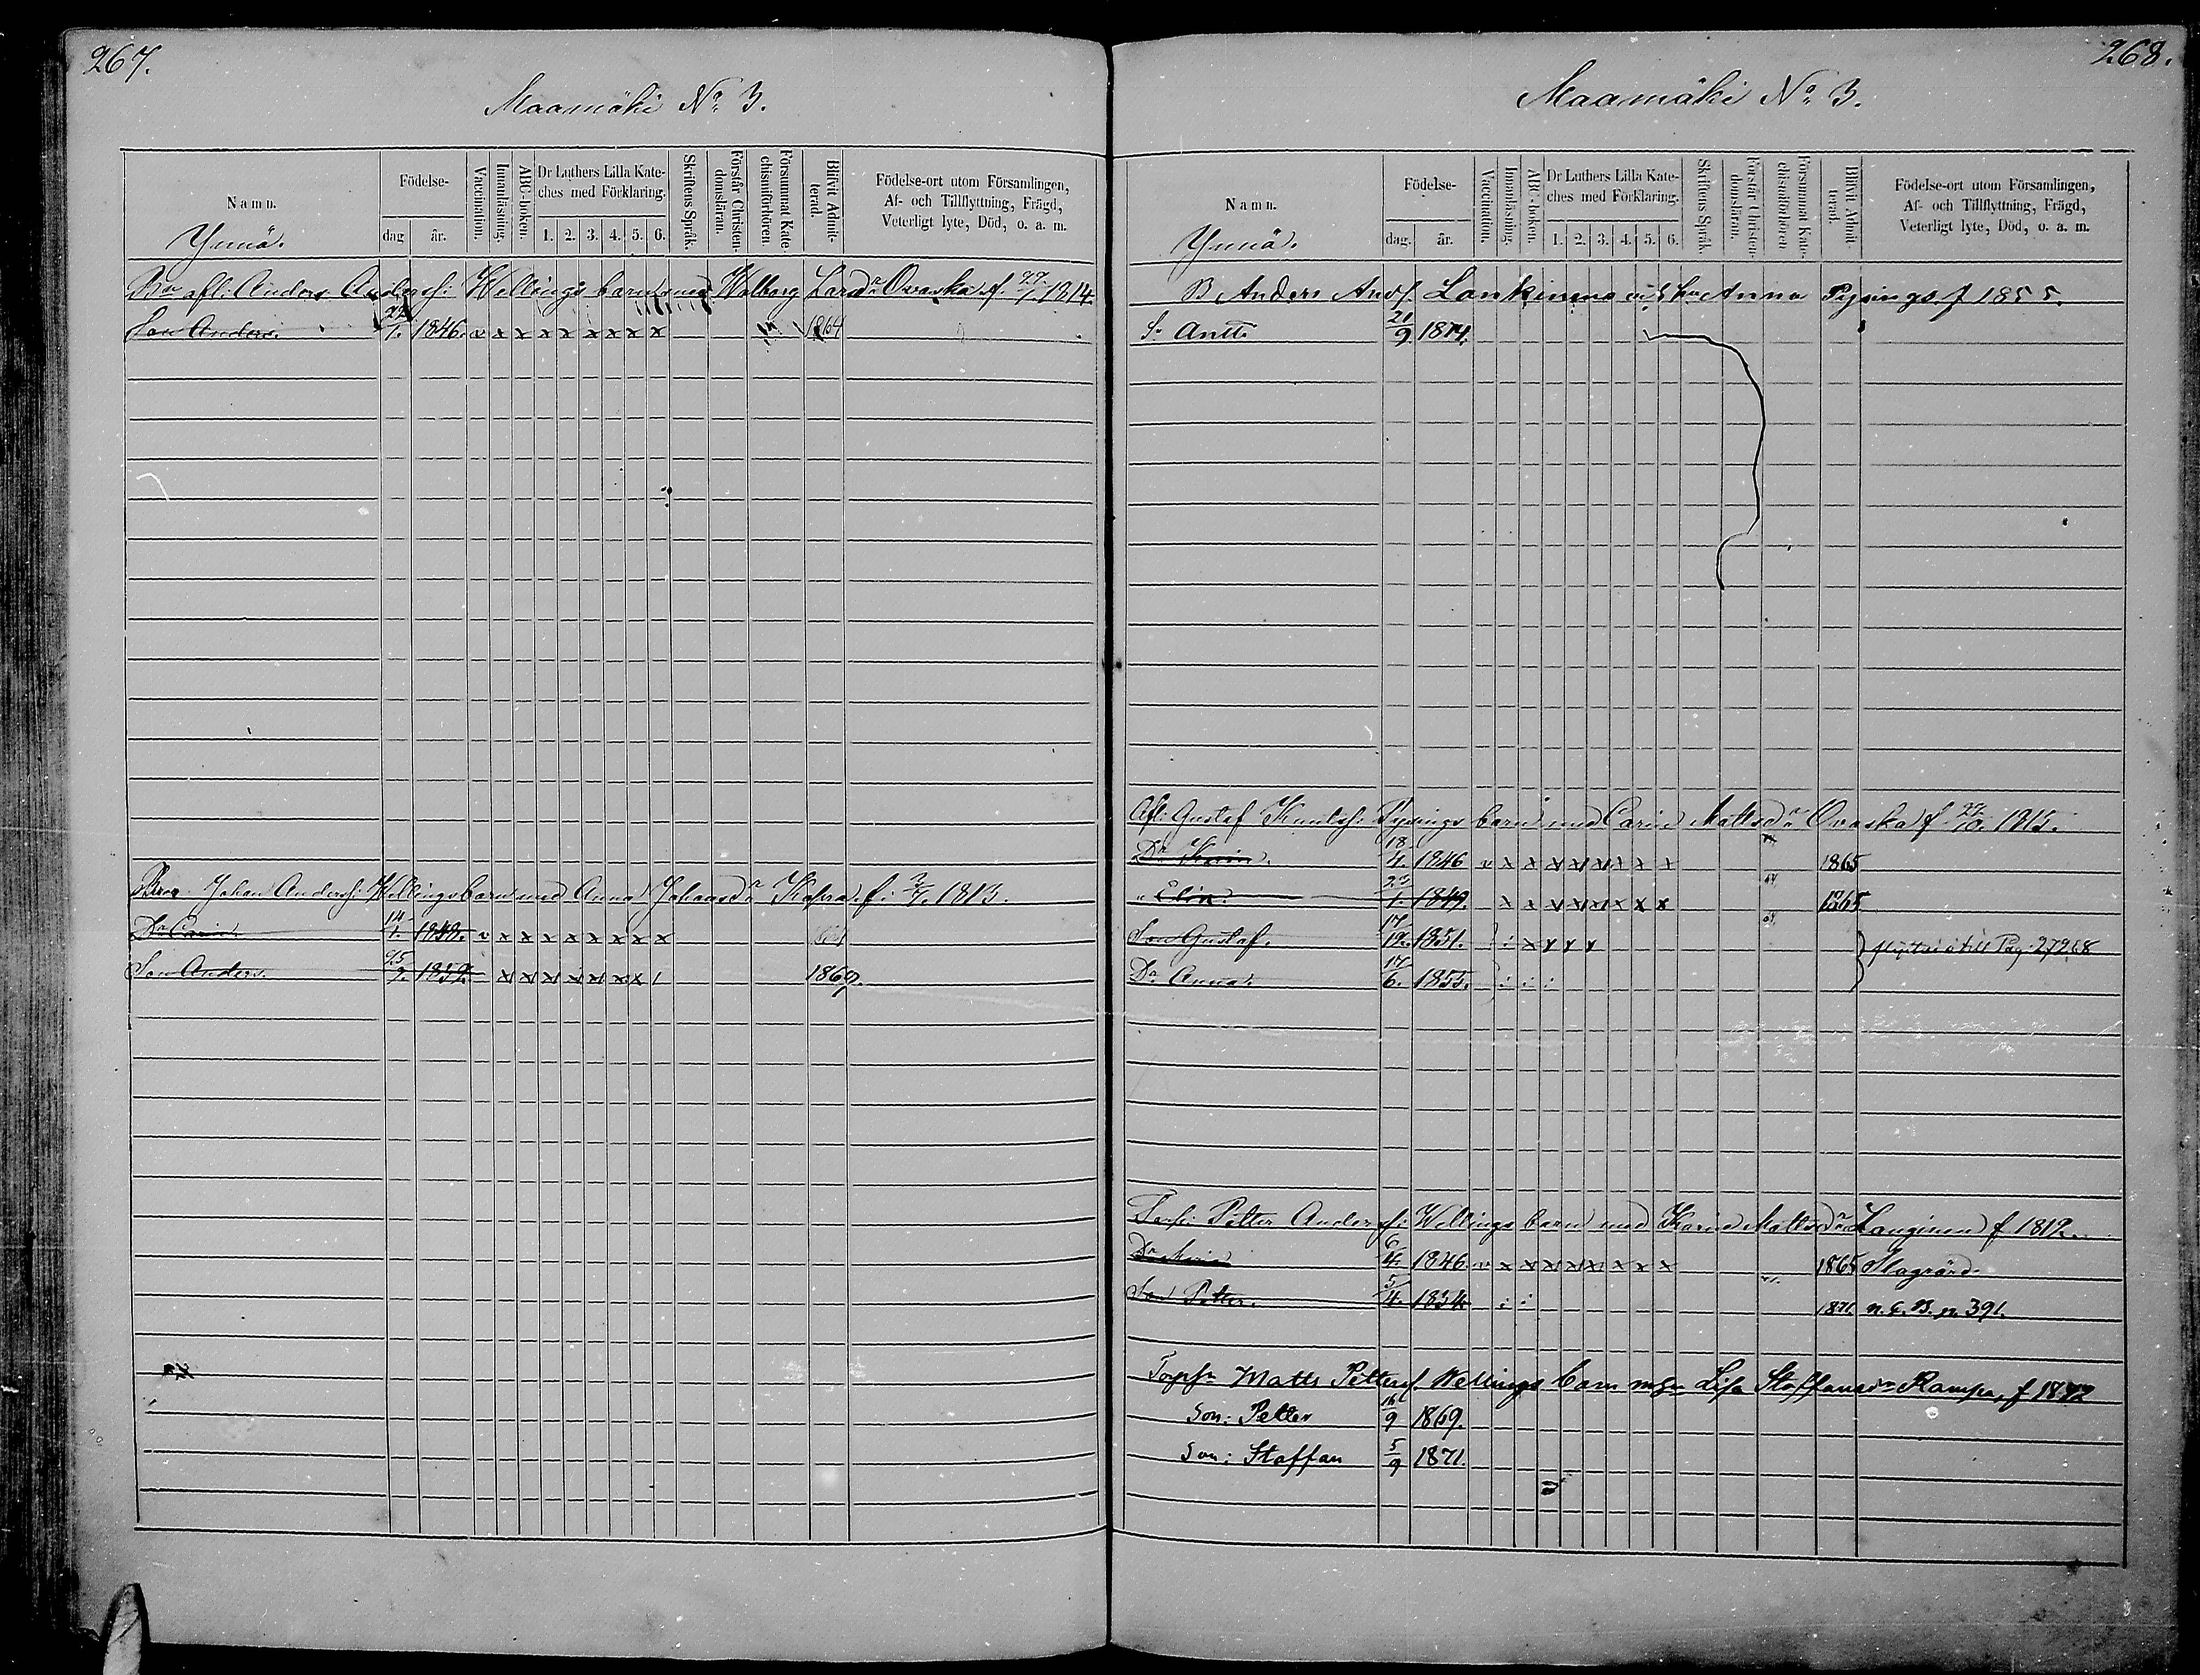 267.
Maamäki No 3.
Namn.
Födelse-
dag
år.
Vaccination.
Innanläsning.
ABC-boken.
Dr Luthers Lilla Kate-
ches med Förklaring.
1. 2. 3. 4. 5. 6.
Skriftens Språk.
Förstår Christen-
domsläran.
Försummat Kate-
chismiförhören.
Blifvit Admit-
terad.
Födelse-ort utom Församlingen,
Af- och Tillflyttning, Frägd,
Veterligt lyte, Död, o. a. m.
Ynnä.
Bn afl: Anders Andersf: Hellings barn med Walborg Larsdr Ovaska f. 27/1 1814.
Son Anders. 22/1. 1846. v x x x x x x x x 1864
Bror Johan Andersf: Wellings barn med Anna Johansdr f. 3/7. 1813.
Dr Carin. 14/1. 1848. v x x x x x x x x
Son Anders. 25/9. 1852. x x x x x x x 1869.
268.
Maamäki No 3.
Namn.
Födelse-
dag.
år.
Vaccination.
Innanläsning.
ABC-boken.
Dr Luthers Lilla Kate-
ches med Förklaring.
1. 2. 3. 4. 5. 6.
Skriftens Språk.
Förstår Christen-
domsläran.
Försummat Kate-
chismiförhören.
Blifvit Admit-
terad.
Födelse-ort utom Församlingen,
Af- och Tillflyttning, Frägd,
Veterligt lyte, Död, o. a. m.
Ynnä.
B Anders Andf. Lankinens Anna Pysings f 1855.
S. Antti 21/9 1874.
Afl: Gustaf Knutsf: Pysings barn med Carin Mattsdr Ovaska f. 27/10. 1815.
Dr Karin. 18/4. 1846 v x x x x x x x x 1865
" Elin. 23/1. 1849. x x x x x x x x 1865
Son Gustaf. 17/12. 1851. : x x x x
flyttat till Pag. 279.68
Dr Anna. 17/6. 1855. : : :
Petter Andersf: Wellings barn med Karin Mattsdr Langinen f 1812.
Dr Maria 6/4. 1846. v x x x x x x x x 1865
Son Petter. 5/4. 1854. : : 1871. n. C. B. p. 391.
Torpf: Matts Pettersf. Wellings barn m Lisa Staffansdr Rampa, f 1842
Son: Petter 16/9 1869.
Son: Staffan 5/9 1871.